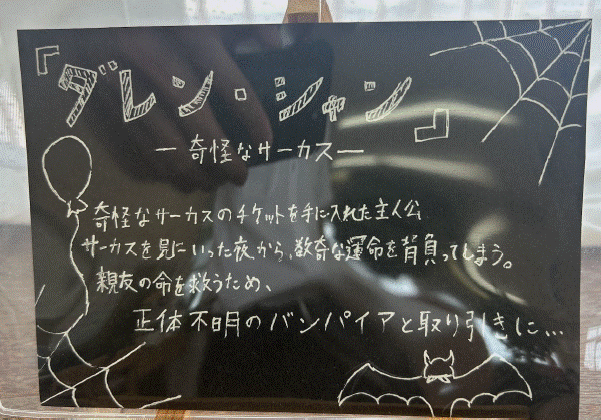 『ダレン・シャン』
―奇怪なサーカス―
奇怪なサーカスのチケットを手に入れた主人公
サーカスを見にいった夜から、数奇な運命を背負ってしまう。
親友の命を救うため、
正体不明のバンパイアと取り引きに…